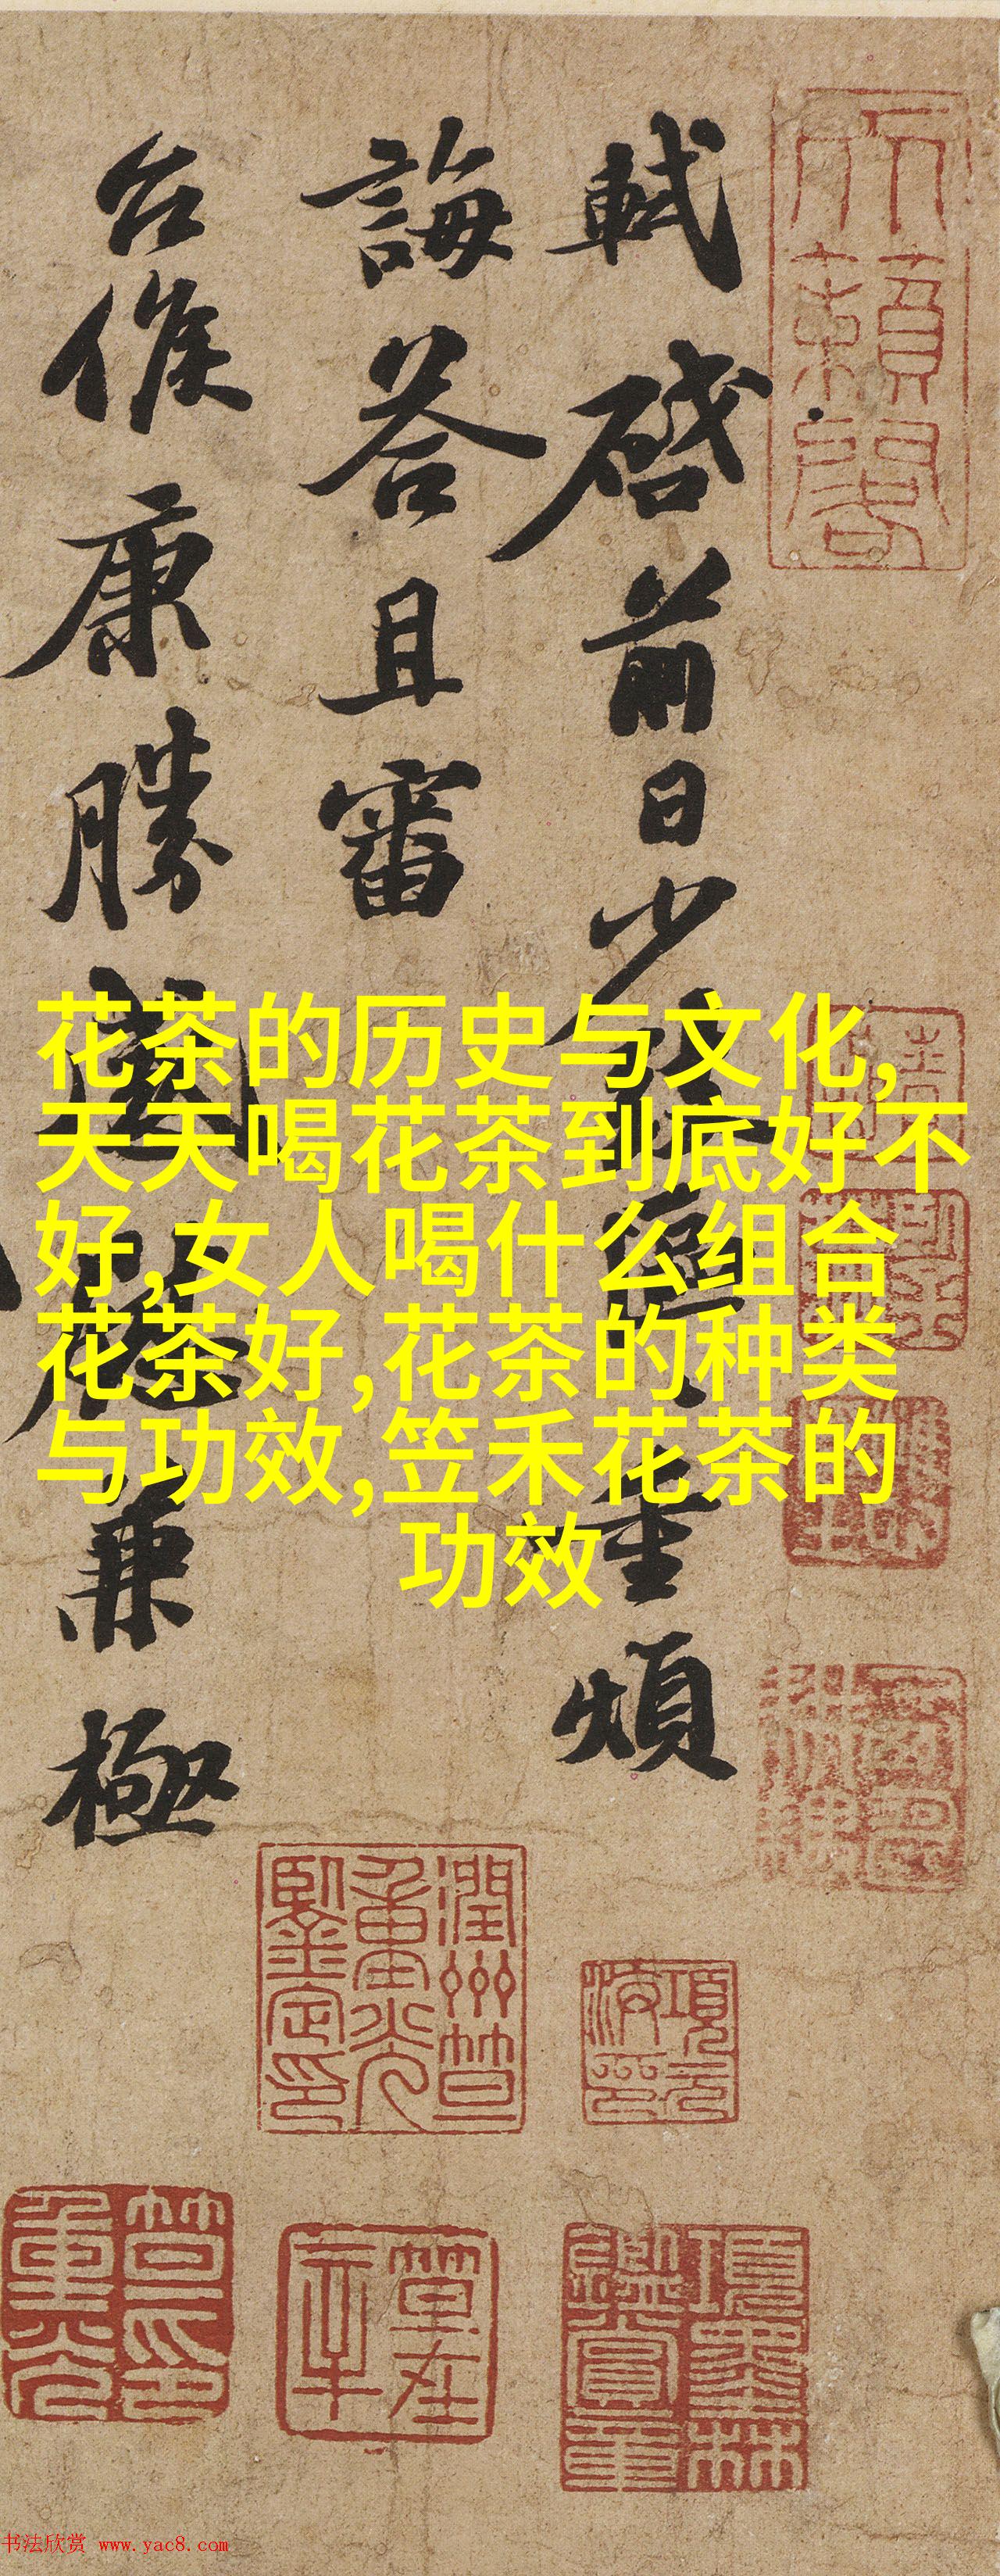 天籟閣
軾啓前日少致區區重煩
誨答且審
台候康勝感慰兼極
花茶的历史与文化,
天天喝花茶到底好不
好,女人喝什么组合
花茶好,花茶的种类
与功效,笠禾花茶的
功效
項墨林鑑賞章
书法欣赏 www.yac8.com